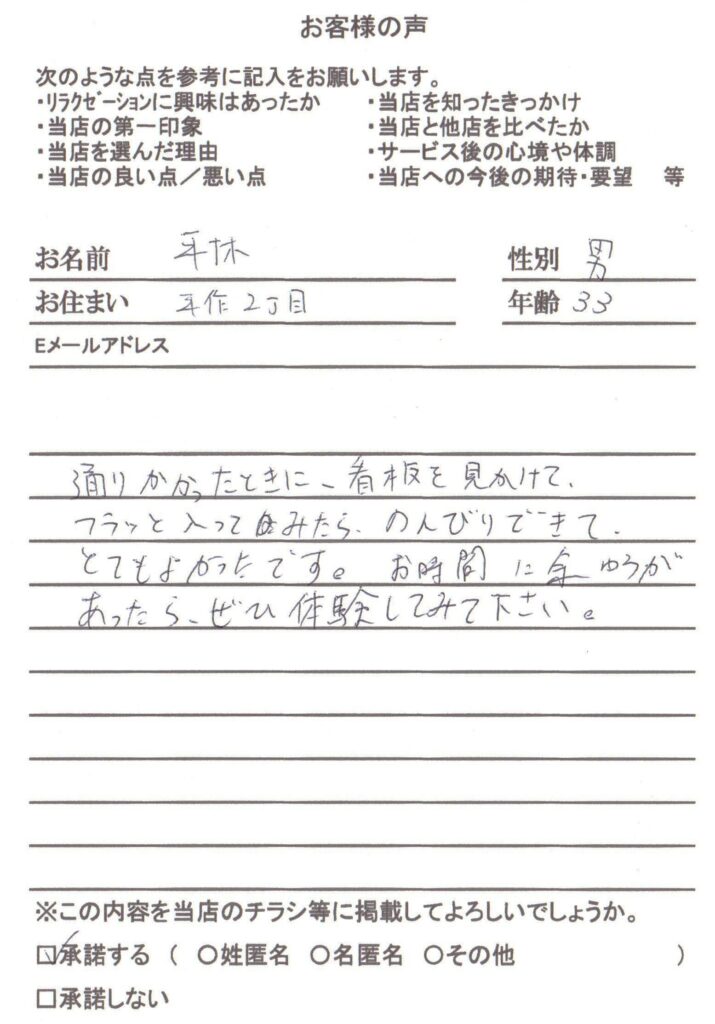 お客様の声
次のような点を参考に記入をお願いします。
・リラクゼーションに興味はあったか　・当店を知ったきっかけ
・当店の第一印象　・当店と他店を比べたか
・当店を選んだ理由　・サービス後の心境や体調
・当店の良い点／悪い点　・当店への今後の期待・要望　等
お名前　平林　性別　男
お住まい　平作2丁目　年齢 33
Eメールアドレス
通りかかったときに、看板を見かけて、
フラッと入ってみたら、のんびりできて、
とてもよかったです。お時間に余ゆうが
あったら、ぜひ体験してみて下さい。
※この内容を当店のチラシ等に掲載してよろしいでしょうか。
☑承諾する（　○姓匿名　○名匿名　○その他　）
□承諾しない